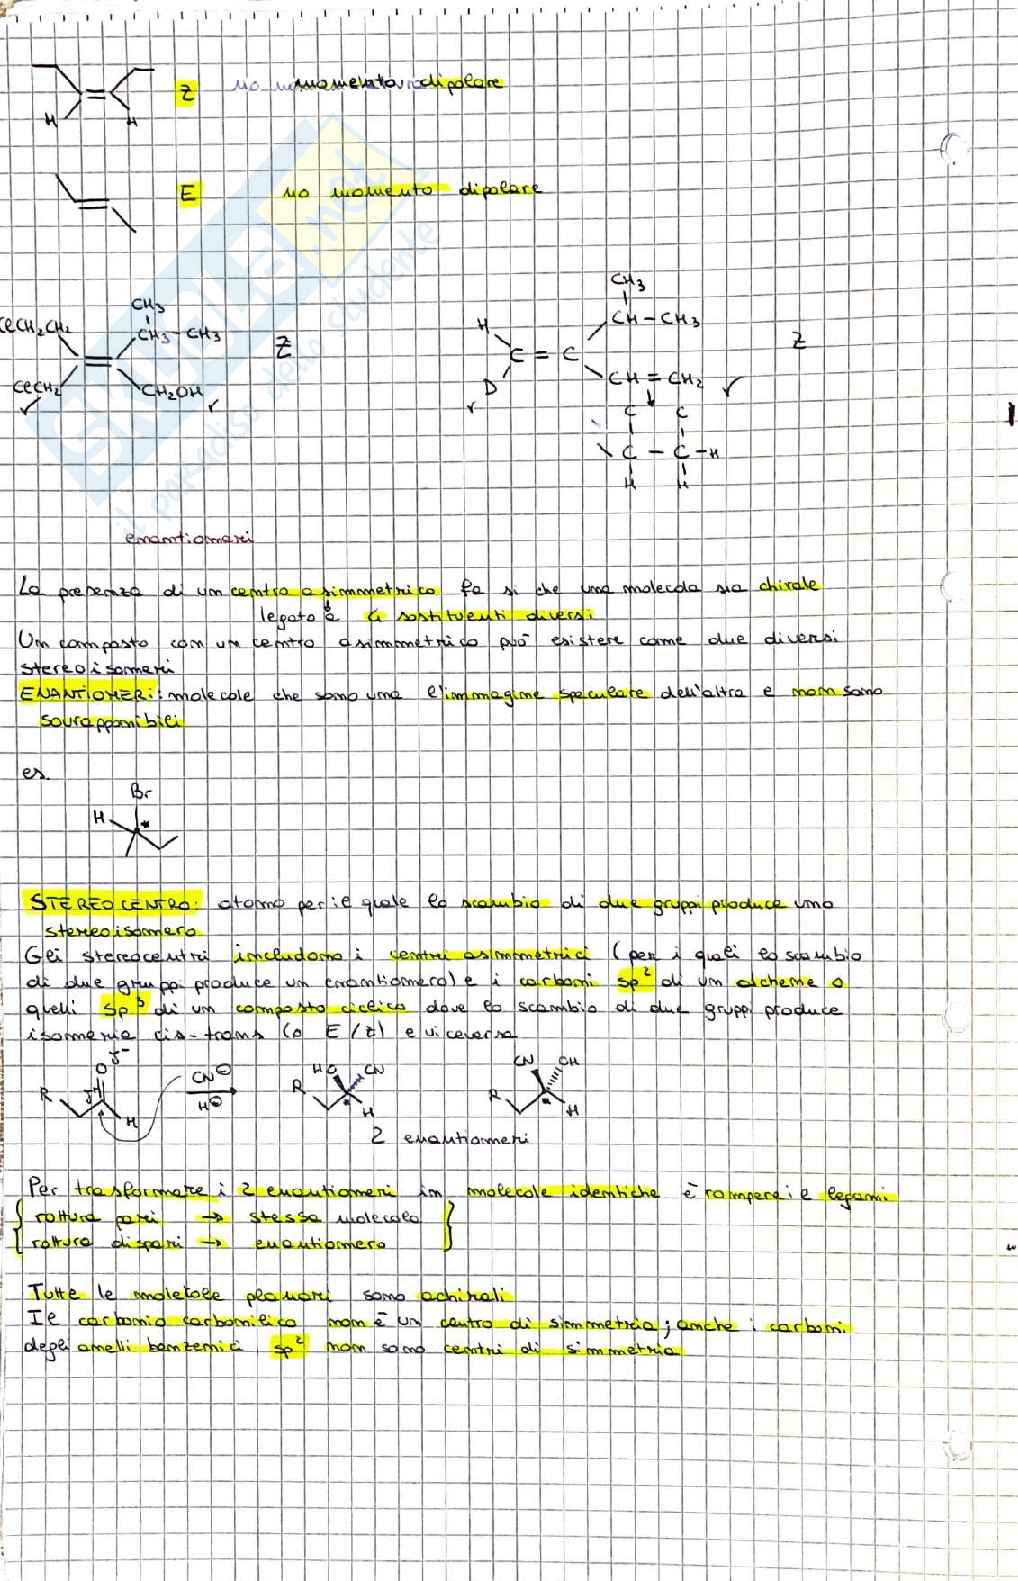 Z no momento dipolare
H H
E no momento dipolare
CH3
ClCH2CH2 CH3 CH3
Z
ClCH2 CH2OH
CH3
H CH-CH3
C = C Z
D CH = CH2
C C
C - C -H
H H
enantiomeri
La presenza di un centro asimmetrico fa si che una molecola sia chirale
legato a 4 sostituenti diversi
Un composto con un centro asimmetrico può esistere come due diversi
stereoisomeri
ENANTIOMERI: molecole che sono una l'immagine speculare dell'altra e non sono
sovrapponibili
es.
Br
H *
STEREOCENTRO: atomo per il quale lo scambio di due gruppi produce uno
stereoisomero
Gli stereocentri includono i centri asimmetrici (per i quali lo scambio
di due gruppi produce un enantiomero) e i carboni sp2 di un alchene o
quelli sp3 di un composto ciclico dove lo scambio di due gruppi produce
isomeria cis-trans (o E/Z) e viceversa
O δ-
R δ+ H
CN⊖
H⊕
HO CN
R H
CN OH
R H
2 enantiomeri
Per trasformare i 2 enantiomeri in molecole identiche è rompere i legami
rottura pari → stessa molecola
rottura dispari → enantiomero
Tutte le molecole planari sono achirali
Il carbonio carbonilico non è un centro di simmetria; anche i carboni
degli anelli benzenici sp2 non sono centri di simmetria
SKUOLA.net
il paradiso dello studente